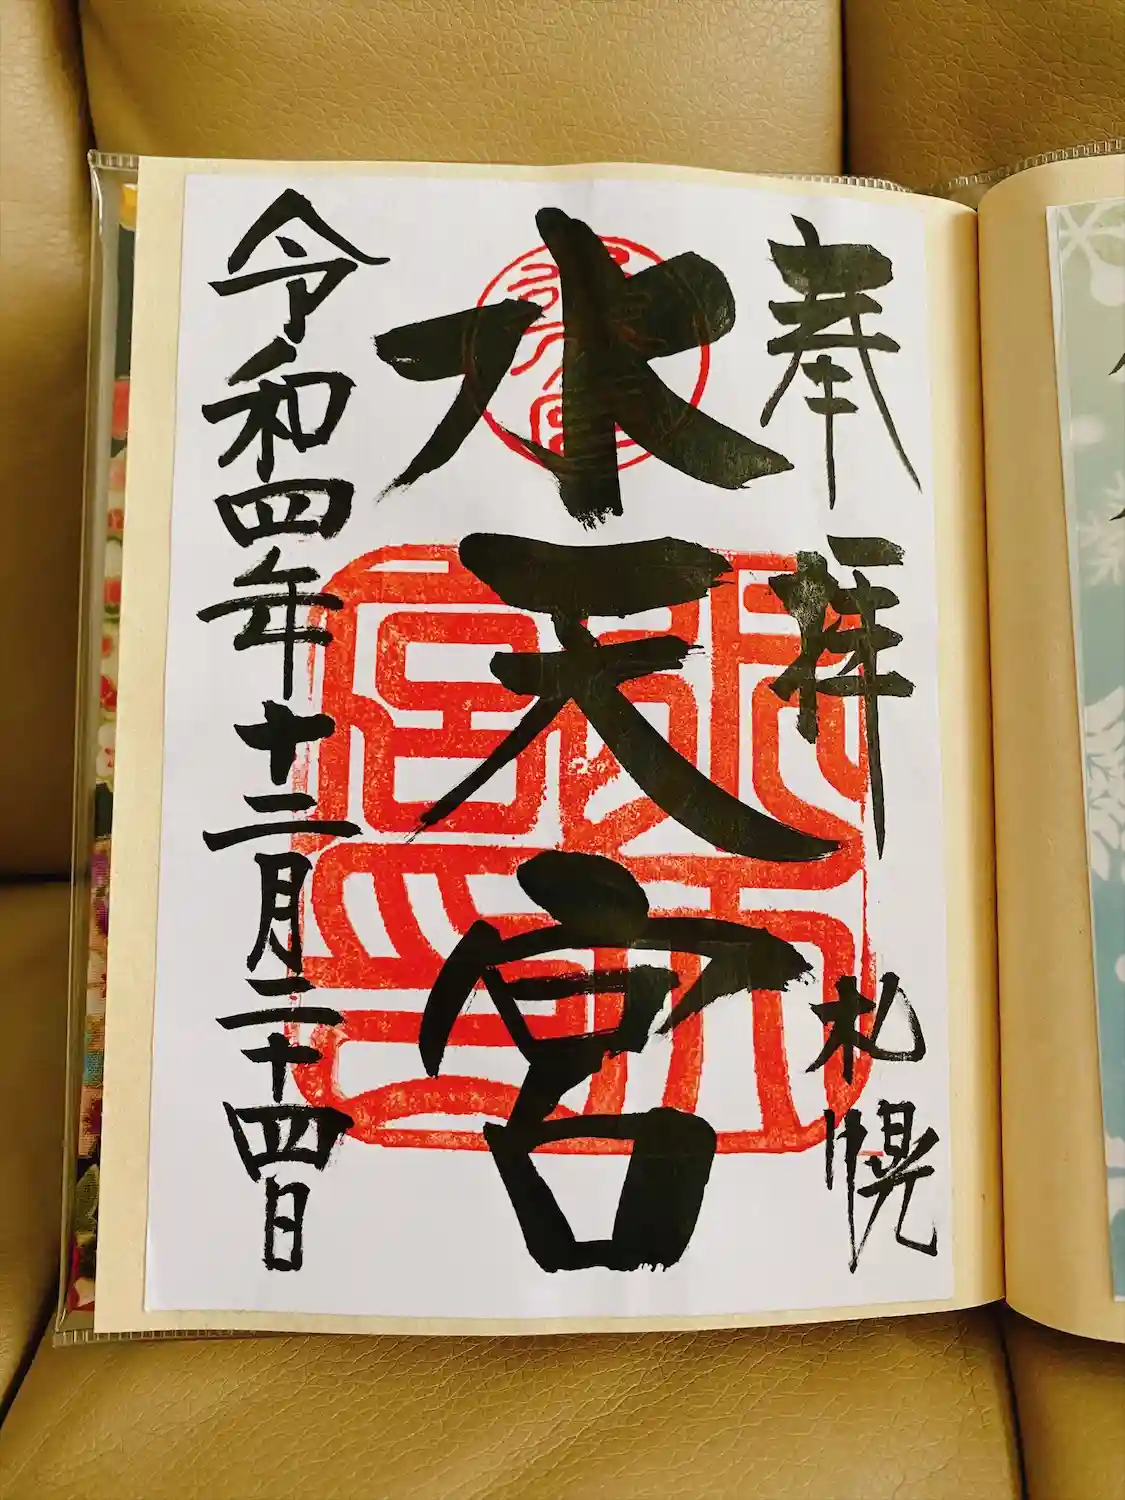 奉拝 札幌
水天宮
令和四年十二月二十四日